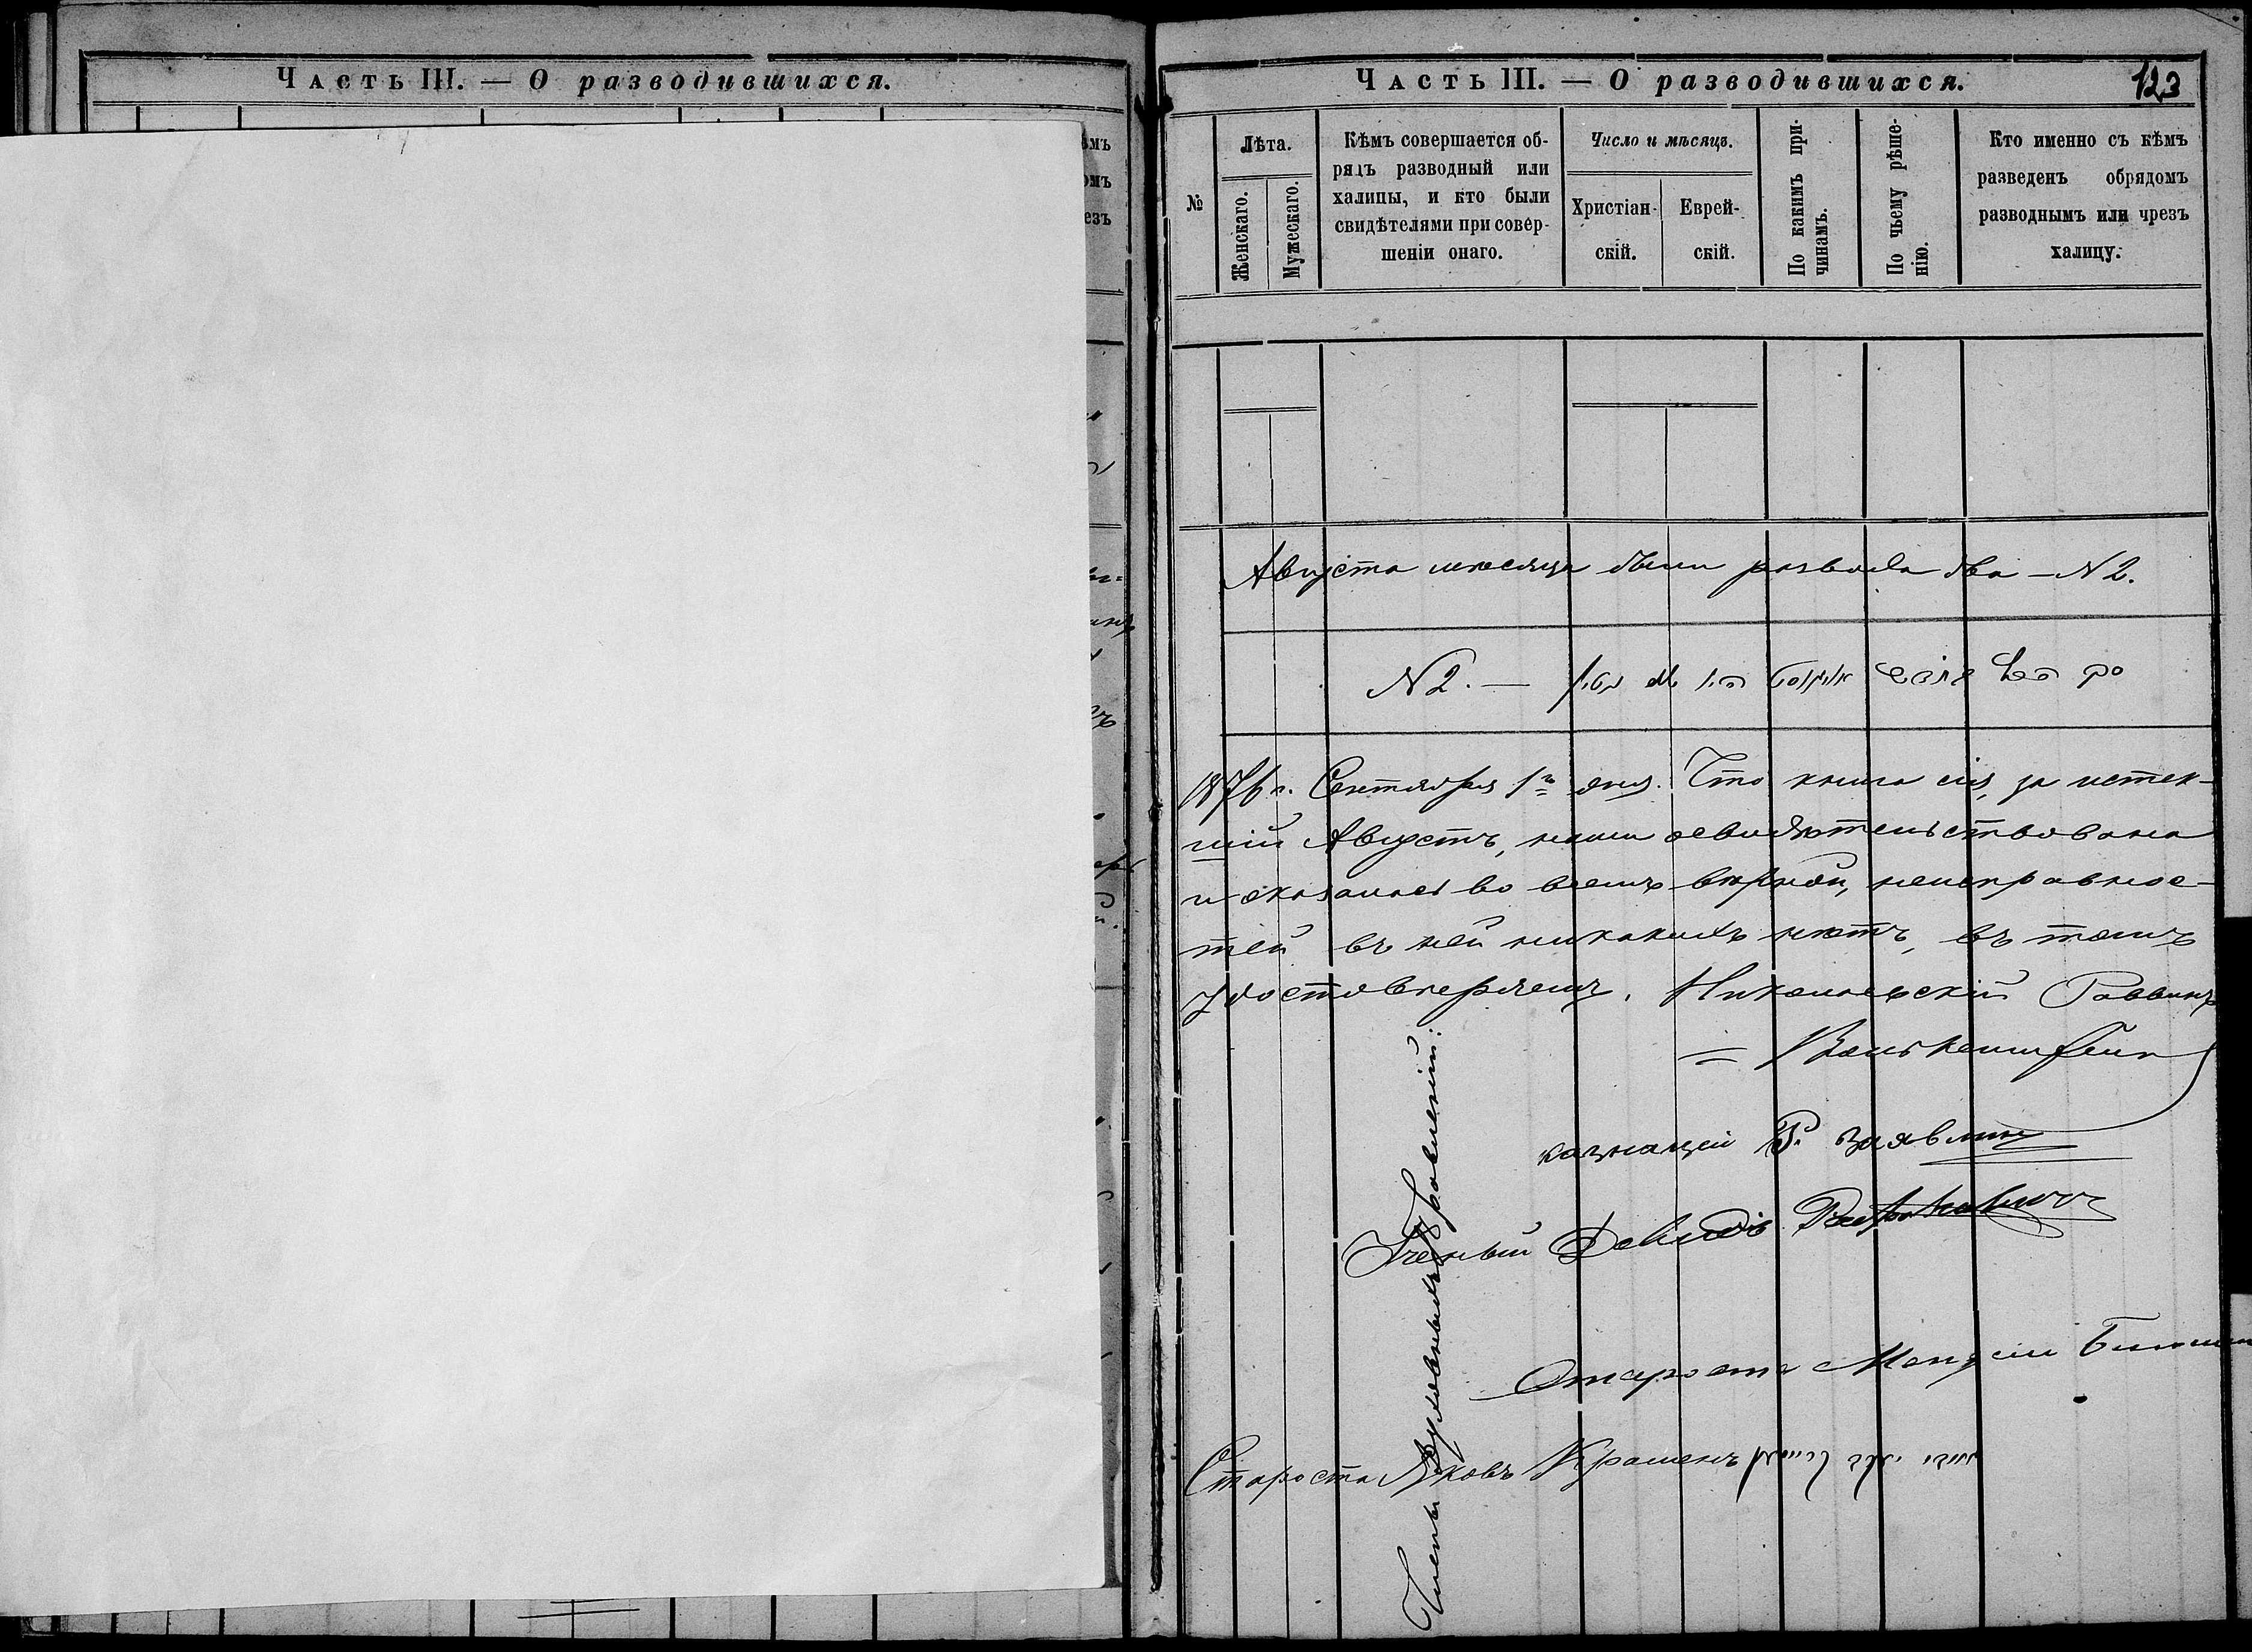 Часть III. — О разводившихся.
Часть III. — О разводившихся.
123
№
Лѣта.
Женскаго.
Мужескаго.
Кѣмъ совершается об-
рядъ разводный или
халицы, и кто были
свидѣтелями при совер-
шеніи онаго.
Число и мѣсяцъ.
Христіан-
скій.
Еврей-
скій.
По какимъ при-
чинамъ.
По чьему рѣше-
нію.
Кто именно съ кѣмъ
разведенъ обрядомъ
разводнымъ или чрезъ
халицу.
Августа мѣсяца были развода два — N 2.
N 2. —
1876 г. Сентября 1го дня. Что книга сія, за истек-
шій Августъ, нами освидѣтельствована
и оказалась во всемъ вѣрной, неисправнос-
тей въ ней никакихъ нѣтъ, въ томъ
удостовѣряемъ. Николаевскій Раввинъ
казначей
Ученый Давидъ
Староста
Староста Яковъ
Члены Духовныхъ Правленій: